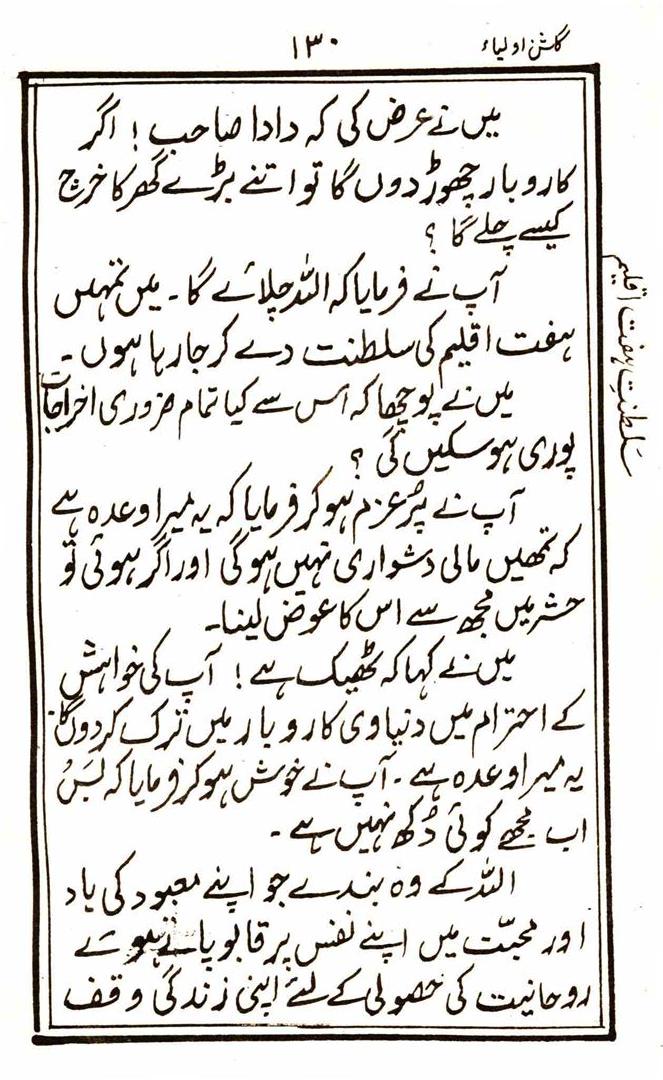 گلشن اولیاء ۱۳۰
میں نے عرض کی کہ دادا صاحب! اگر
کاروبار چھوڑ دوں گا تو اتنے بڑے گھر کا خرچ
کیسے چلے گا؟
آپ نے فرمایا کہ اللہ چلائے گا۔ میں تمہیں
ہفت اقلیم کی سلطنت دے کر جا رہا ہوں۔
سلطنتِ ہفت اقلیم
میں نے پوچھا کہ اس سے کیا تمام ضروری اخراجات
پوری ہو سکیں گی؟
آپ نے پُر عزم ہو کر فرمایا کہ یہ میرا وعدہ ہے
کہ تمھیں مالی دشواری نہیں ہو گی اور اگر ہوئی تو
حشر میں مجھ سے اس کا عوض لینا۔
میں نے کہا کہ ٹھیک ہے! آپ کی خواہش
کے احترام میں دنیاوی کاروبار میں ترک کر دوں گا۔
یہ میرا وعدہ ہے۔ آپ نے خوش ہو کر فرمایا کہ بَس
اب مجھے کوئی دُکھ نہیں ہے۔
اللہ کے وہ بندے جو اپنے معبود کی یاد
اور محبّت میں اپنے نفس پر قابو پاتے ہوئے
روحانیت کی حصولی کے لئے اپنی زندگی وقف